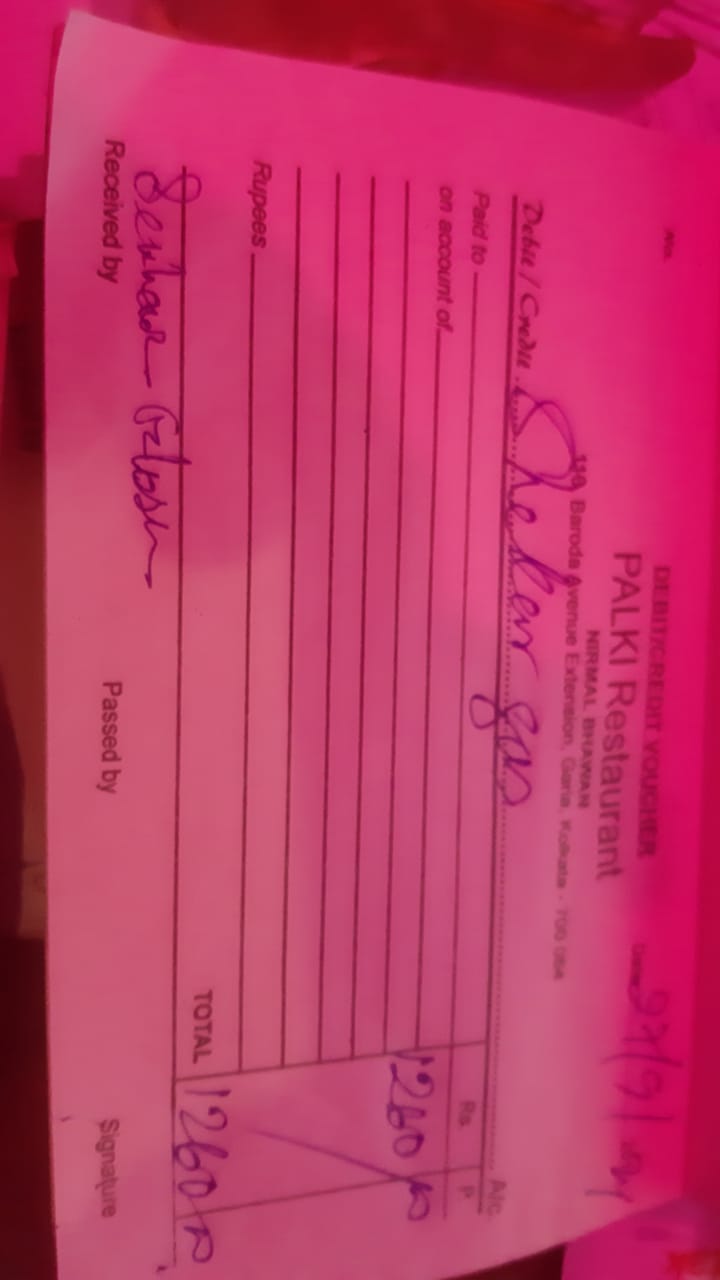 No.
DEBIT/CREDIT VOUCHER
PALKI Restaurant
NIRMAL BHAWAN
119, Baroda Avenue Extension, Garia, Kolkata - 700 084
Date
Debit / Credit A/c.
Paid to
on account of
Rs. P
1260/00
Rupees
TOTAL 1260/00
Ghosh
Received by Passed by Signature